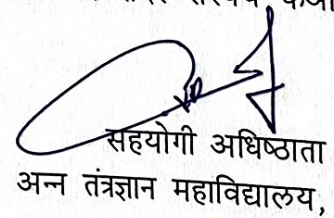 सहयोगी अधिष्ठाता
अन्न तंत्रज्ञान महाविद्यालय,